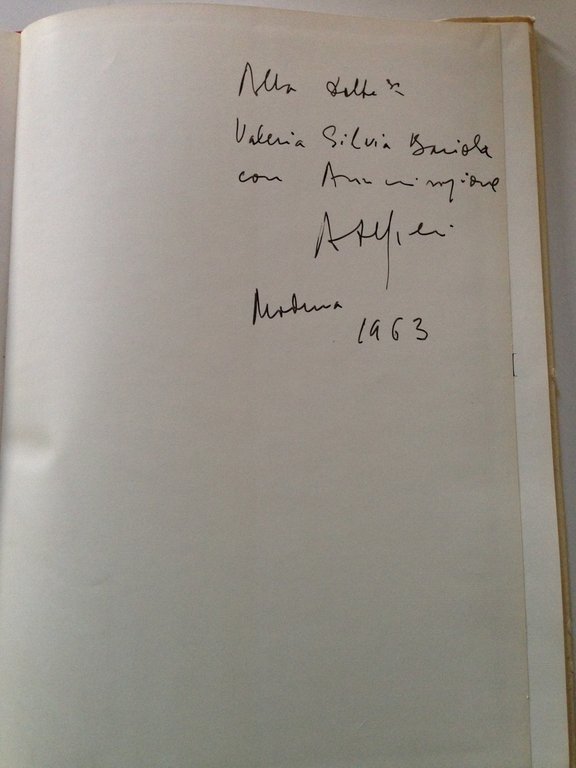 Alla Dott.ssa
Valeria Silvia Bariola
con Ammirazione
Modena
1963